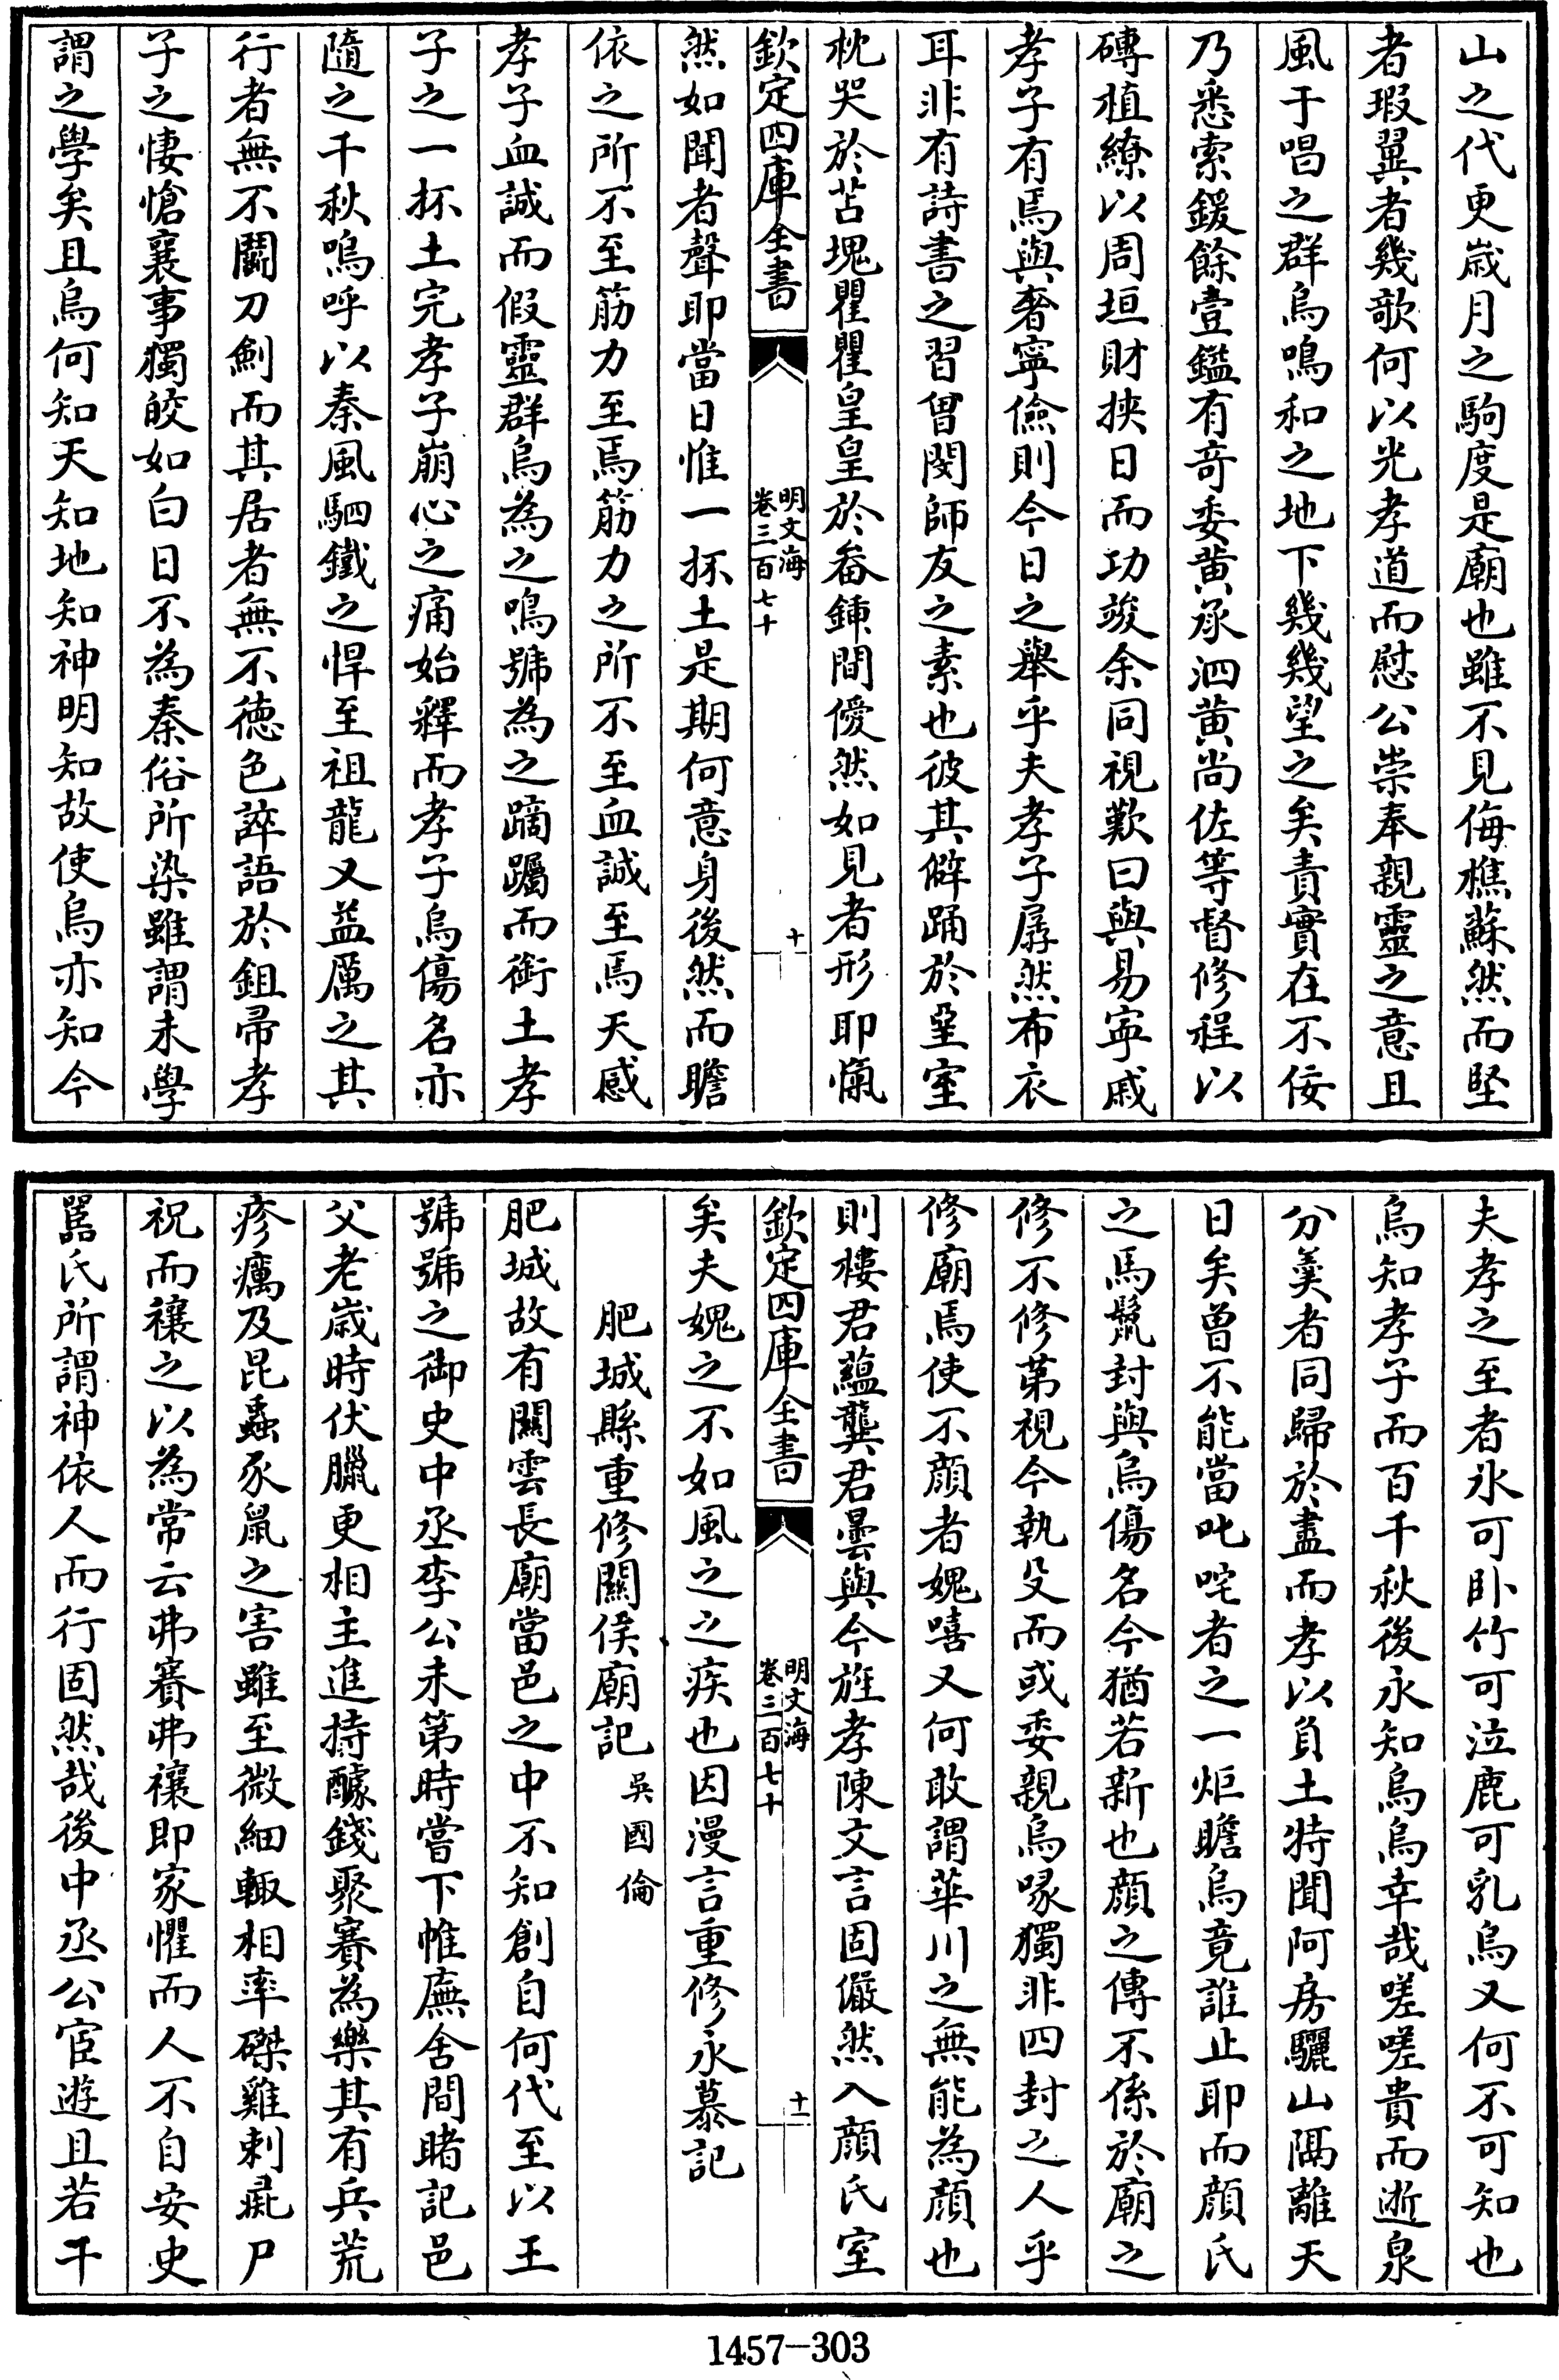 山之代更歳月之駒度是廟也雖不見侮樵蘇然而堅
者瑕翼者幾歌何以光孝道而慰公崇奉親靈之意且
風于唱之群烏鳴和之地下幾幾望之矣責實在不佞
乃悉索鍰餘壹鎰有奇委黄承泗黄尚佐等督修程以
磚植繚以周垣財挾日而功竣余同視歎曰與易寧戚
孝子有焉與奢寧儉則今日之舉乎夫孝子孱然布衣
耳非有詩書之習曾閔師友之素也彼其僻踊於堊室
枕哭於苫塊瞿瞿皇皇於畚鍤間僾然如見者形耶愾
欽定四庫全書
明文海
卷三百七十
十
然如聞者聲耶當日惟一抔土是期何意身後然而瞻
依之所不至筋力至焉筋力之所不至血誠至焉天感
孝子血誠而假靈群烏為之鳴號為之蹢躅而銜土孝
子之一抔土完孝子崩心之痛始釋而孝子烏傷名亦
隨之千秋嗚呼以秦風駟鐵之悍至祖龍又益厲之其
行者無不鬭刀劍而其居者無不徳色誶語於鉏帚孝
子之悽愴襄事獨皎如白日不為秦俗所染雖謂未學
謂之學矣且烏何知天知地知神明知故使烏亦知今
夫孝之至者氷可卧竹可泣鹿可乳烏又何不可知也
烏知孝子而百千秋後永知烏烏幸哉嗟嗟貴而逝泉
分羹者同歸於盡而孝以負土特聞阿房驪山隅離天
日矣曽不能當叱咤者之一炬瞻烏竟誰止耶而顔氏
之馬鬛封與烏傷名今猶若新也顔之傳不係於廟之
修不修第視今執殳而或委親烏喙獨非四封之人乎
修廟焉使不顔者媿嘻又何敢謂華川之無能為顔也
則樓君蘊龔君曇與今旌孝陳文言固儼然入顔氏室
欽定四庫全書
明文海
卷三百七十
十一
矣夫媿之不如風之之疾也因漫言重修永慕記
肥城縣重修關侯廟記 吳國倫
肥城故有關雲長廟當邑之中不知創自何代至以王
號號之御史中丞李公未第時嘗下帷廡舍間睹記邑
父老歳時伏臘更相主進持醵錢聚賽為樂其有兵荒
疹癘及昆蟲豕鼠之害雖至微細輙相率磔雞刺彘尸
祝而禳之以為常云弗賽弗禳即家懼而人不自安史
嚚氏所謂神依人而行固然哉後中丞公宦遊且若干
1457-303